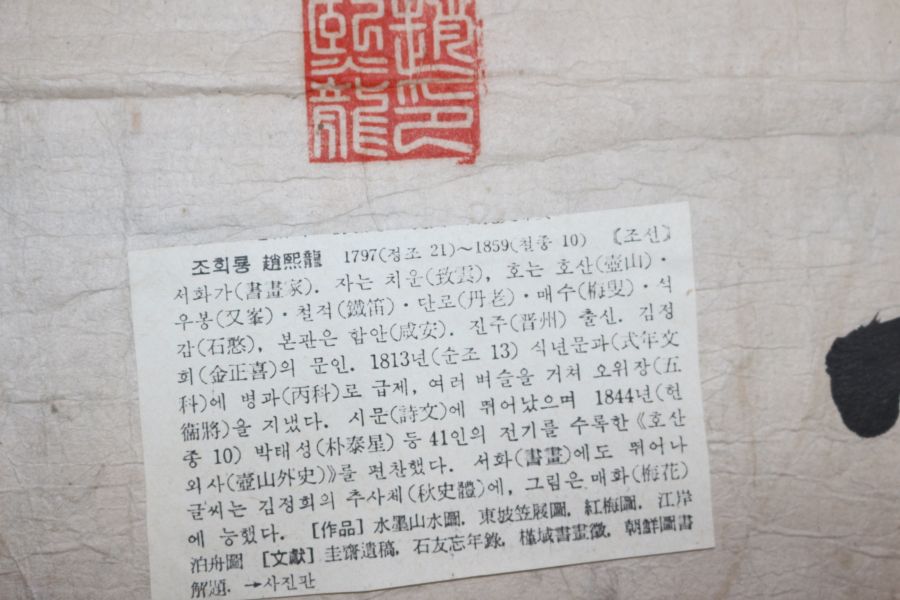 趙印
熙龍
조희룡 趙熙龍 1797(정조 21)~1859(철종 10) 《조선》
서화가(書畫家). 자는 치운(致雲), 호는 호산(壺山)·
우봉(又峯)·철적(鐵笛)·단로(丹老)·매수(梅叟)·석
감(石憨), 본관은 함안(咸安). 진주(晋州) 출신. 김정
희(金正喜)의 문인. 1813년(순조 13) 식년문과(式年文
科)에 병과(丙科)로 급제, 여러 벼슬을 거쳐 오위장(五
衞將)을 지냈다. 시문(詩文)에 뛰어났으며 1844년(헌
종 10) 박태성(朴泰星) 등 41인의 전기를 수록한 《호산
외사(壺山外史)》를 편찬했다. 서화(書畫)에도 뛰어나
글씨는 김정희의 추사체(秋史體)에, 그림은 매화(梅花)
에 능했다. [作品] 水墨山水圖, 東坡笠屐圖, 紅梅圖, 江岸
泊舟圖 [文獻] 圭齋遺稿, 石友忘年錄, 槿域書畫徵, 朝鮮圖書
解題. →사진판